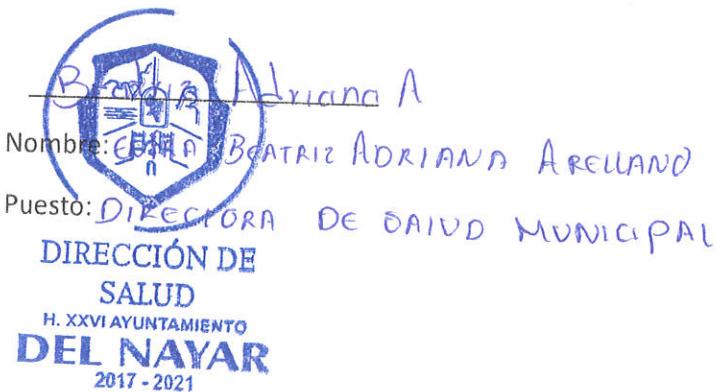 Beatriz Adriana A
Nombre: BEATRIZ ADRIANA ARELLANO
Puesto: DIRECTORA DE SALUD MUNICIPAL
DIRECCIÓN DE
SALUD
H. XXVI AYUNTAMIENTO
DEL NAYAR
2017 - 2021